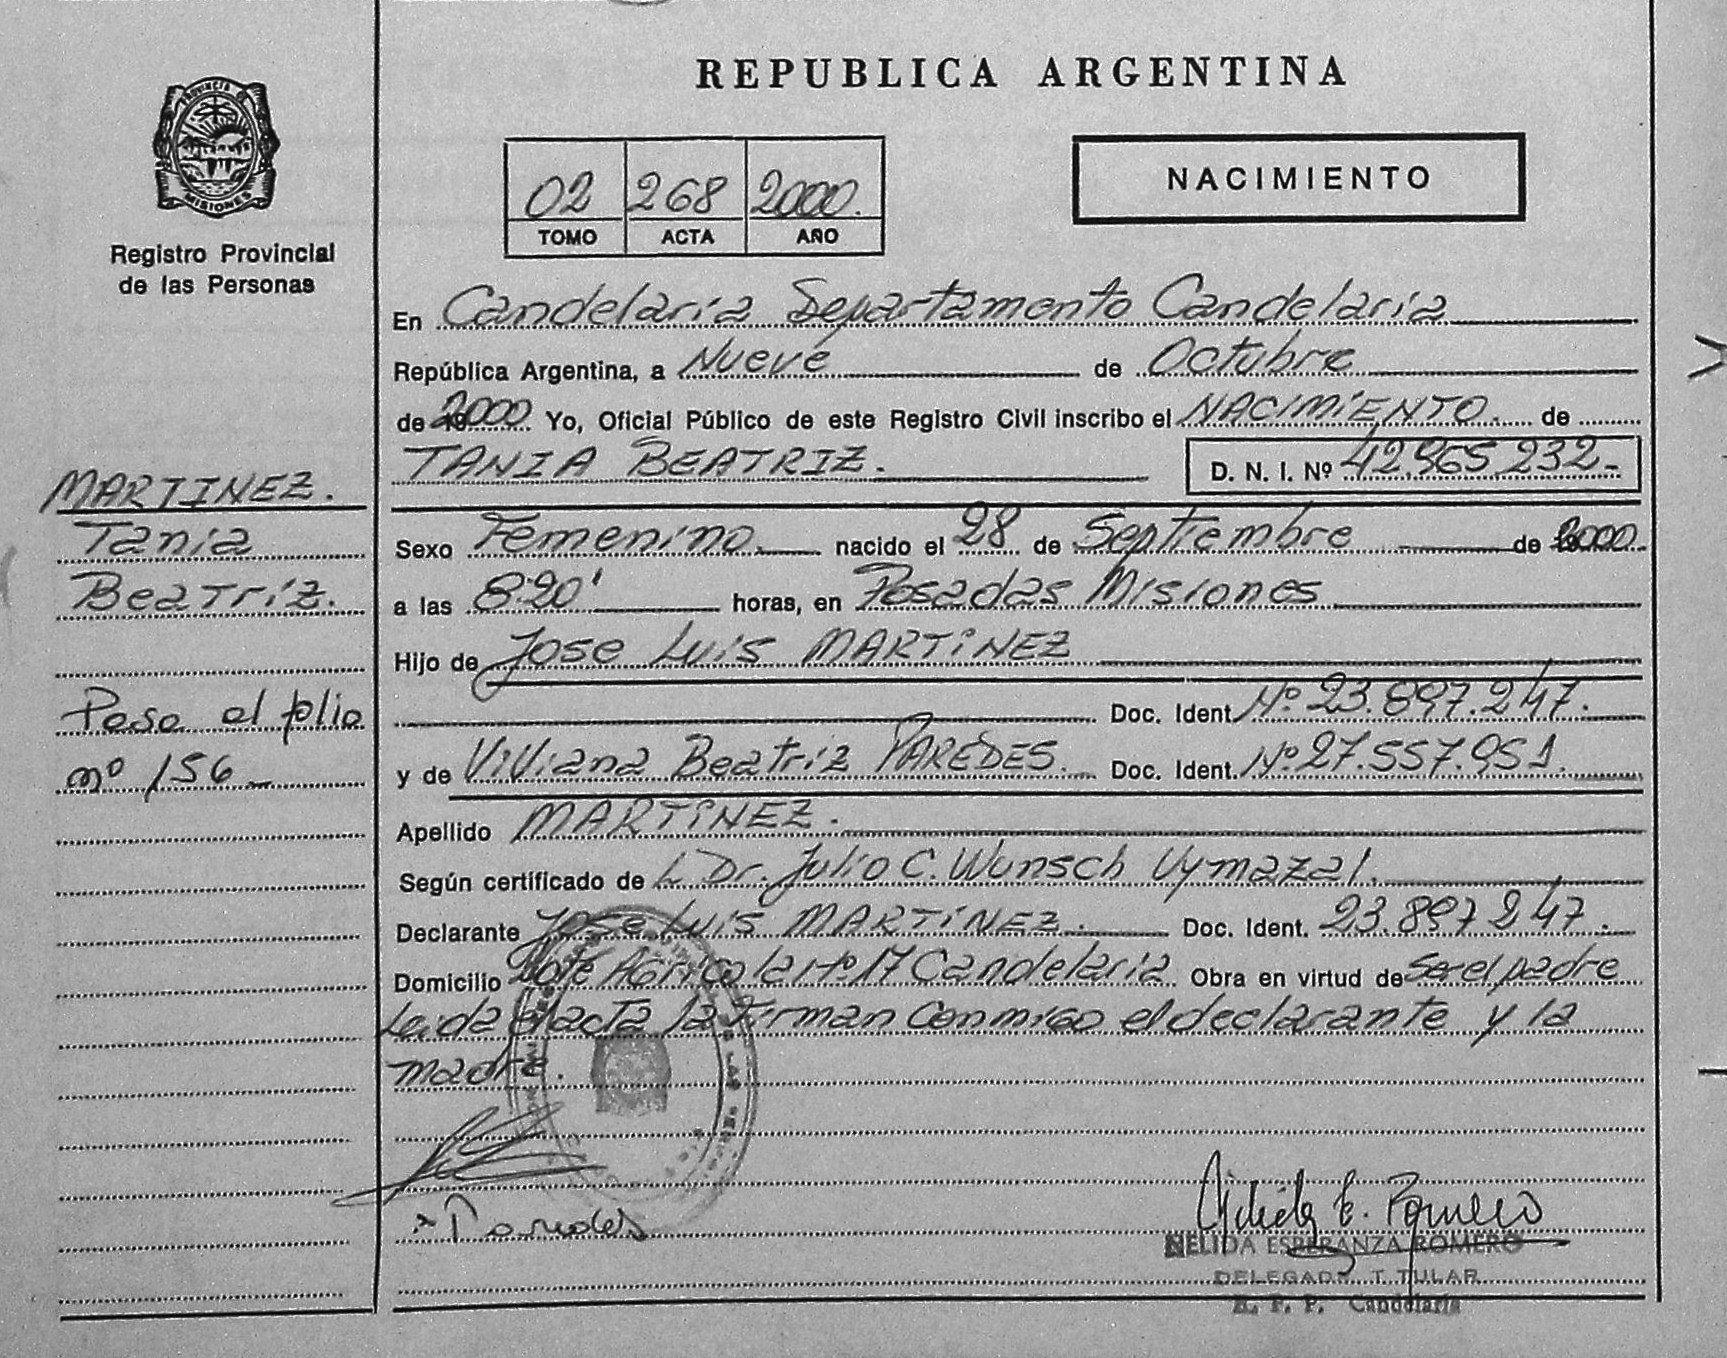 PROVINCIA DE
MISIONES
Registro Provincial
de las Personas
MARTINEZ.
Tania
Beatriz.
Pasa al folio
nº 156
REPUBLICA ARGENTINA
02 268 2000.
TOMO ACTA AÑO
NACIMIENTO
En Candelaria Departamento Candelaria
República Argentina, a Nueve de Octubre
de 2000 Yo, Oficial Público de este Registro Civil inscribo el NACIMIENTO. de
TANIA BEATRIZ. D. N. I. Nº 42.965.232-
Sexo Femenino nacido el 28 de Septiembre de 2000
a las 8:20' horas, en Posadas Misiones
Hijo de Jose Luis MARTINEZ
Doc. Ident. Nº 23.897.247.
y de Viviana Beatriz PAREDES. Doc. Ident. Nº 27.557.951.
Apellido MARTINEZ.
Según certificado de L Dr. Julio C. Wunsch Vymazal.
Declarante Jose Luis MARTINEZ. Doc. Ident. 23.897247.
Domicilio Lote Agricola Nº 17 Candelaria Obra en virtud de ser el padre
Leida el acta la Firman Conmigo el declarante y la
madre.
Paredes
NELIDA ESPERANZA ROMERO
DELEGADA TITULAR
R. P. P. Candelaria